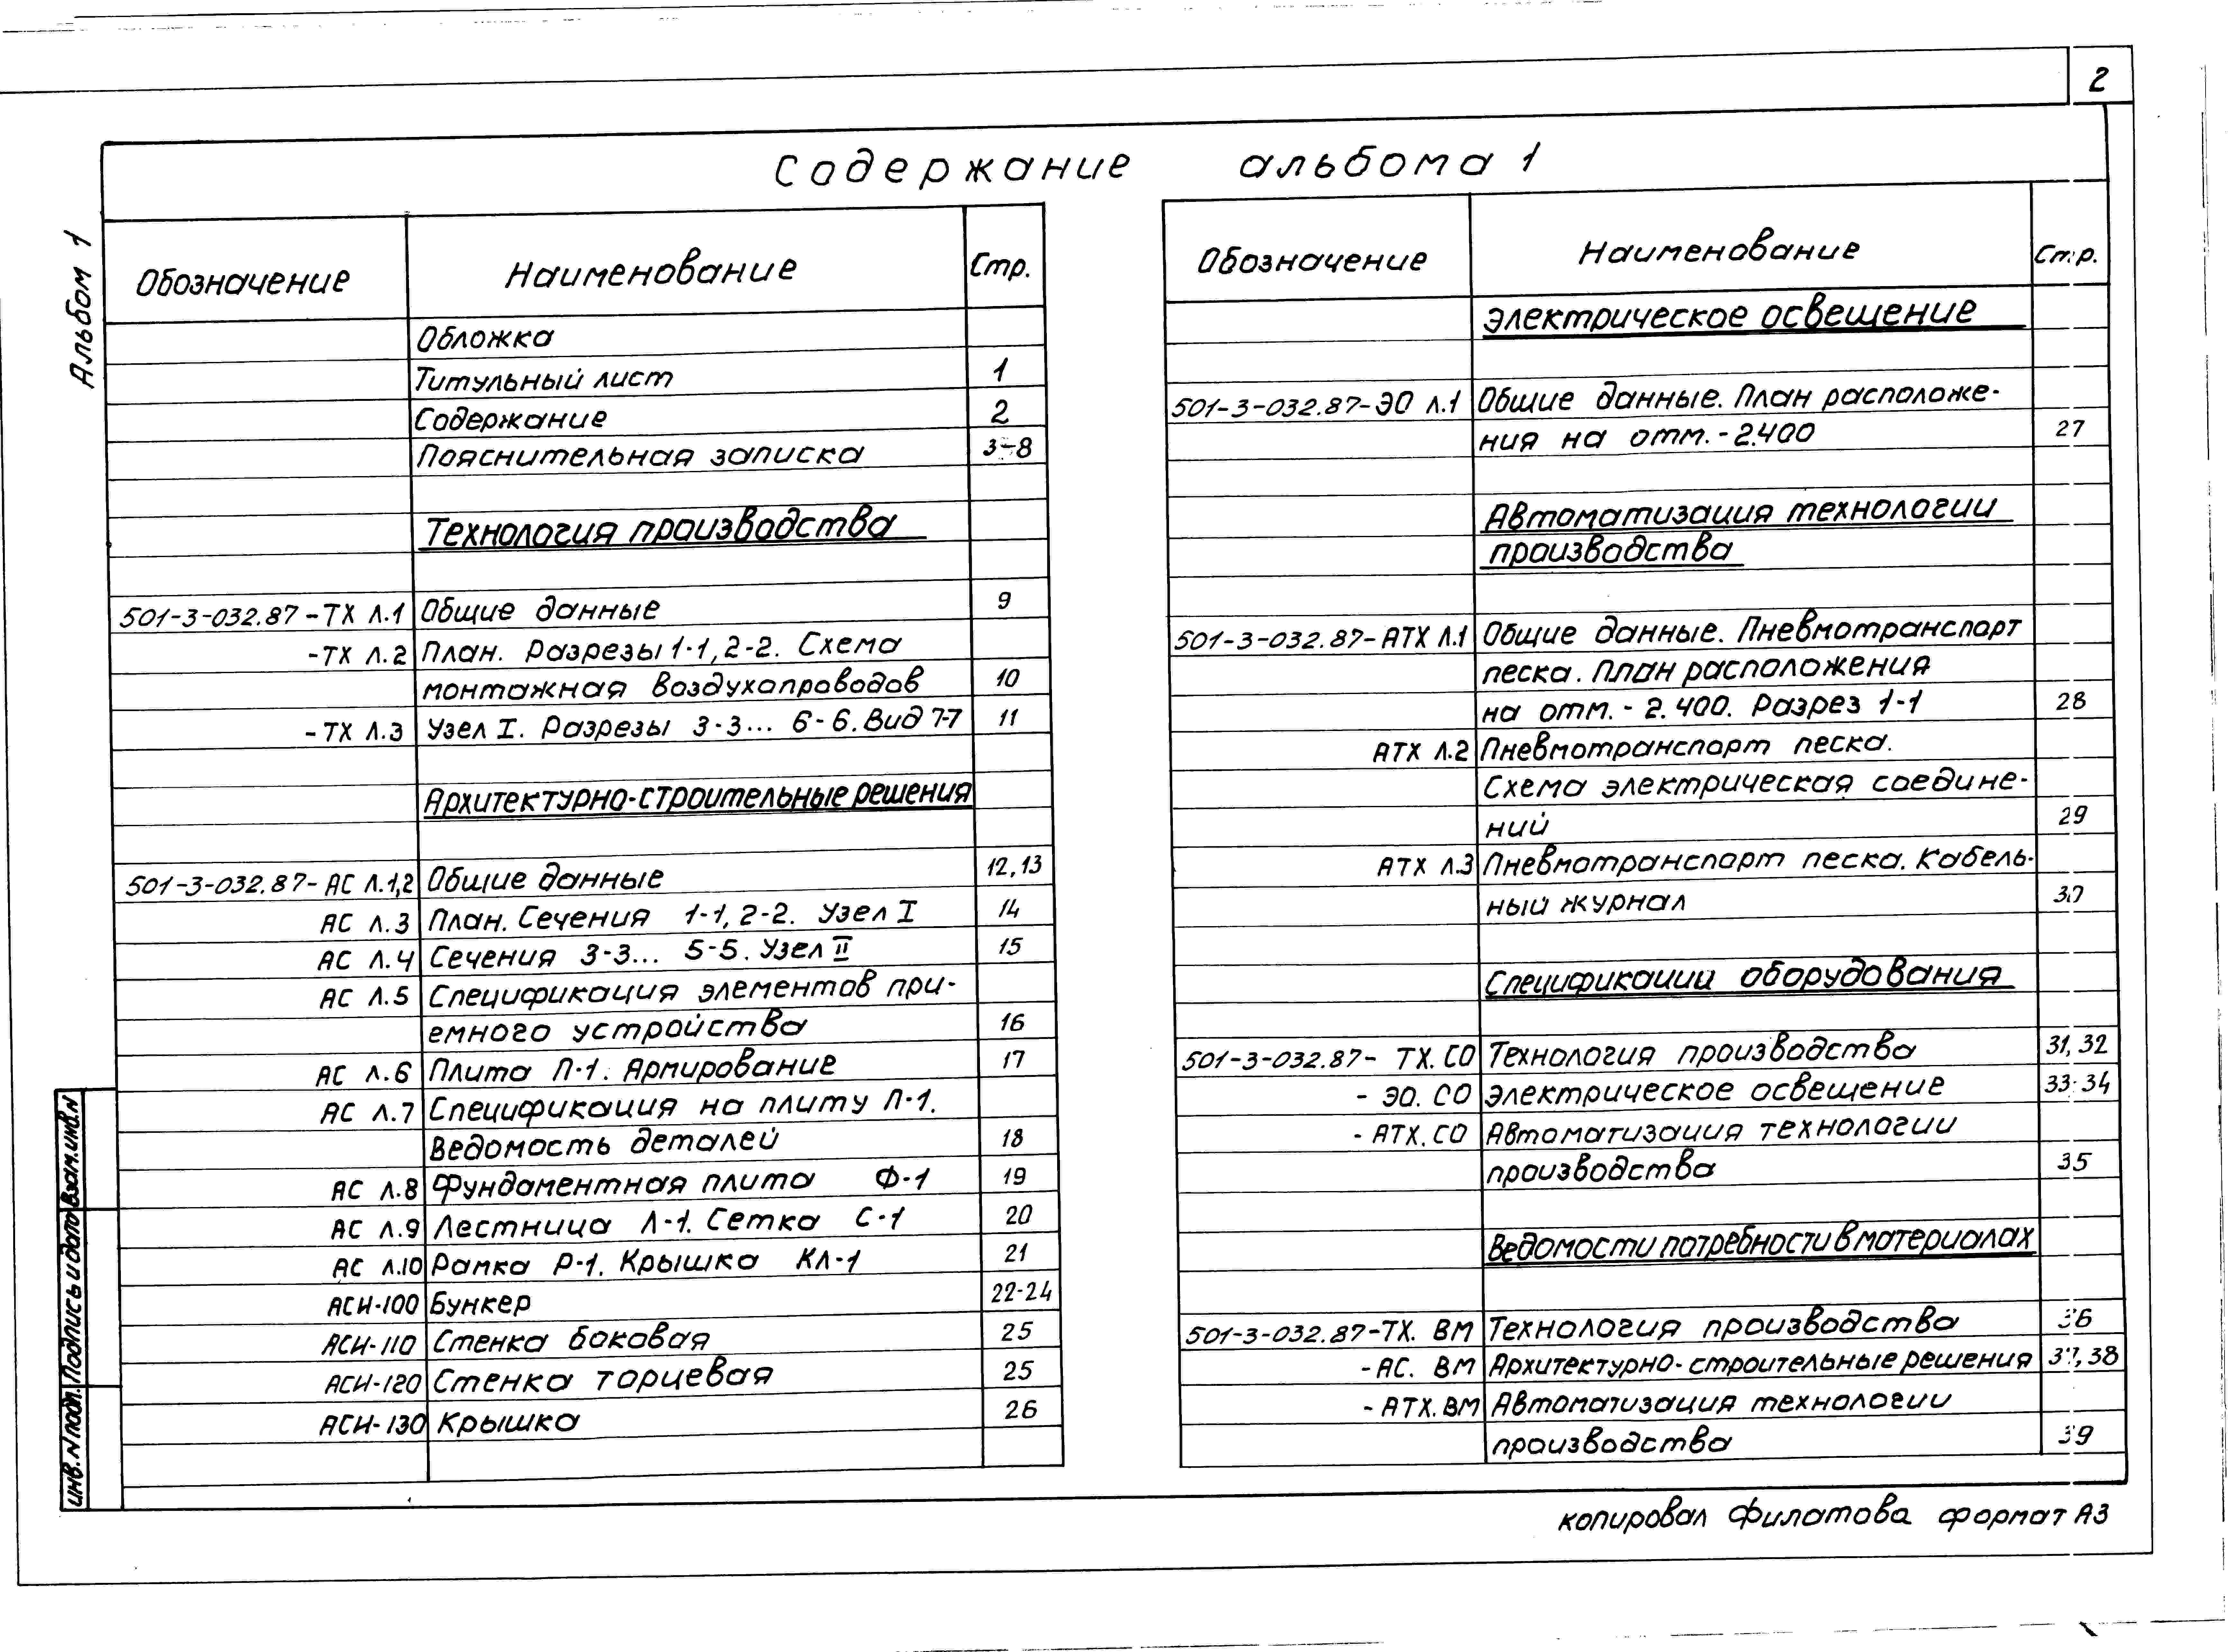 2
Содержание альбома 1
Альбом 1
Обозначение Наименование Стр.
Обложка
Титульный лист 1
Содержание 2
Пояснительная записка 3-8
Технология производства
501-3-032.87-ТХ Л.1 Общие данные 9
-ТХ Л.2 План. Разрезы 1-1, 2-2. Схема
монтажная воздухопроводов 10
-ТХ Л.3 Узел I. Разрезы 3-3... 6-6. Вид 7-7 11
Архитектурно-строительные решения
501-3-032.87-АС Л.1,2 Общие данные 12,13
АС Л.3 План. Сечения 1-1, 2-2. Узел I 14
АС Л.4 Сечения 3-3... 5-5. Узел II 15
АС Л.5 Спецификация элементов при-
емного устройства 16
АС Л.6 Плита П-1. Армирование 17
АС Л.7 Спецификация на плиту П-1.
Ведомость деталей 18
АС Л.8 Фундаментная плита Ф-1 19
АС Л.9 Лестница Л-1. Сетка С-1 20
АС Л.10 Рамка Р-1. Крышка КЛ-1 21
АСИ-100 Бункер 22-24
АСИ-110 Стенка боковая 25
АСИ-120 Стенка торцевая 25
АСИ-130 Крышка 26
Обозначение Наименование Стр.
Электрическое освещение
501-3-032.87-ЭО Л.1 Общие данные. План расположе-
ния на отм. -2.400 27
Автоматизация технологии
производства
501-3-032.87-АТХ Л.1 Общие данные. Пневмотранспорт
песка. План расположения
на отм. -2.400. Разрез 1-1 28
АТХ Л.2 Пневмотранспорт песка.
Схема электрическая соедине-
ний 29
АТХ Л.3 Пневмотранспорт песка. Кабель-
ный журнал 30
Спецификации оборудования
501-3-032.87- ТХ.СО Технология производства 31, 32
- ЭО. СО Электрическое освещение 33-34
- АТХ.СО Автоматизация технологии
производства 35
Ведомости потребности в материалах
501-3-032.87-ТХ. ВМ Технология производства 36
-АС. ВМ Архитектурно-строительные решения 37,38
- АТХ.ВМ Автоматизация технологии
производства 39
Инв.N подл. Подпись и дата Взам.инв.N
копировал Филатова формат А3